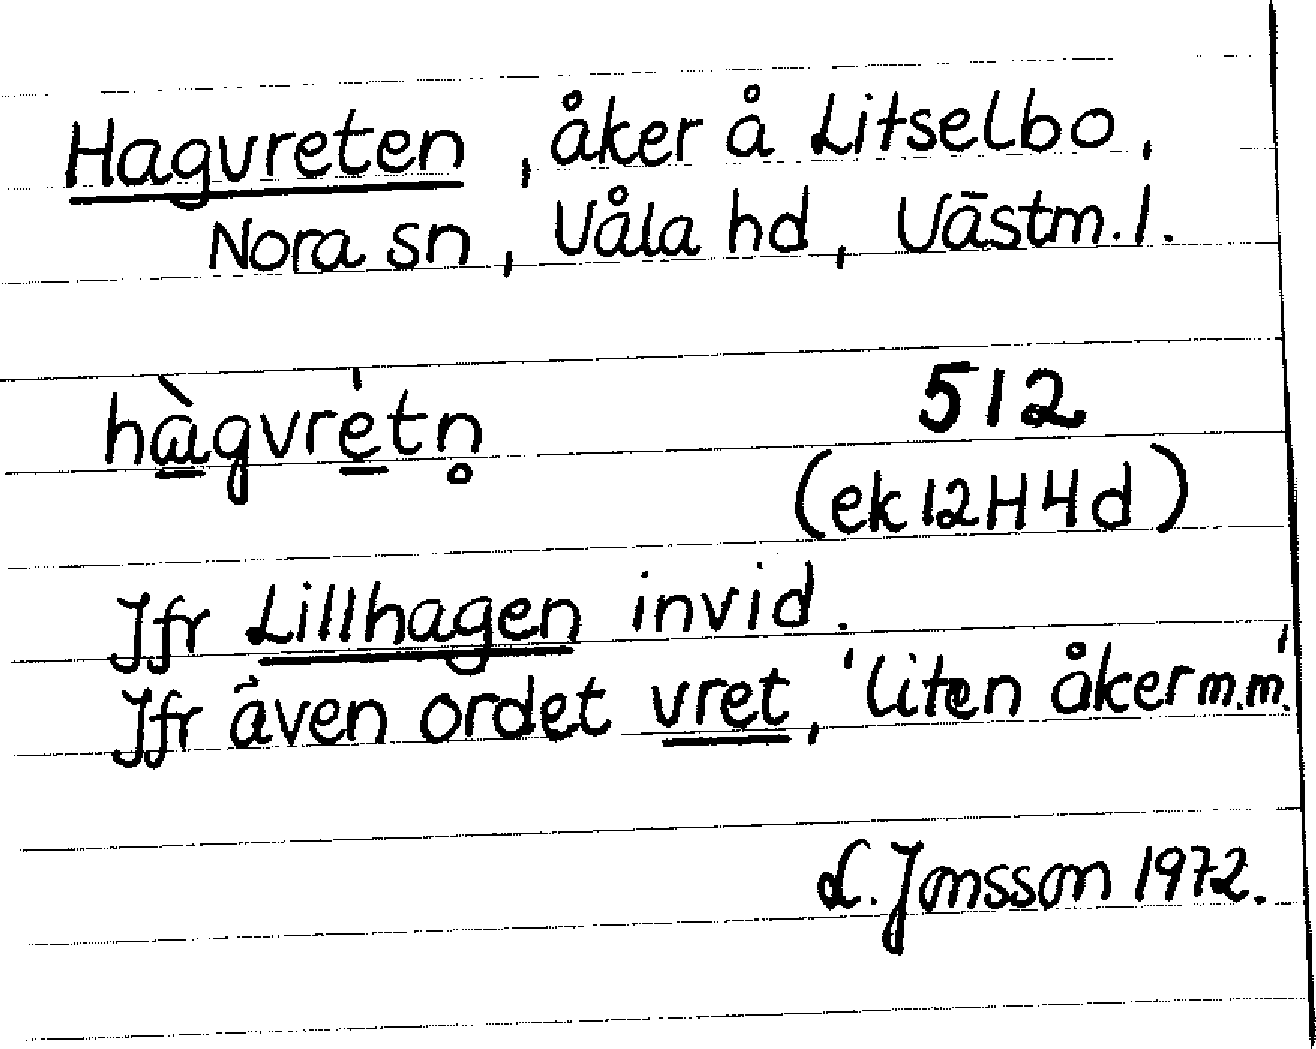 Hagvreten, åker å Litselbo,
Nora sn, Våla hd, Västm. l.
hàgvrétn̥ 512
(ek 12H4d)
Jfr Lillhagen invid.
Jfr även ordet vret, 'liten åker m.m.'
L. Jonsson 1972.